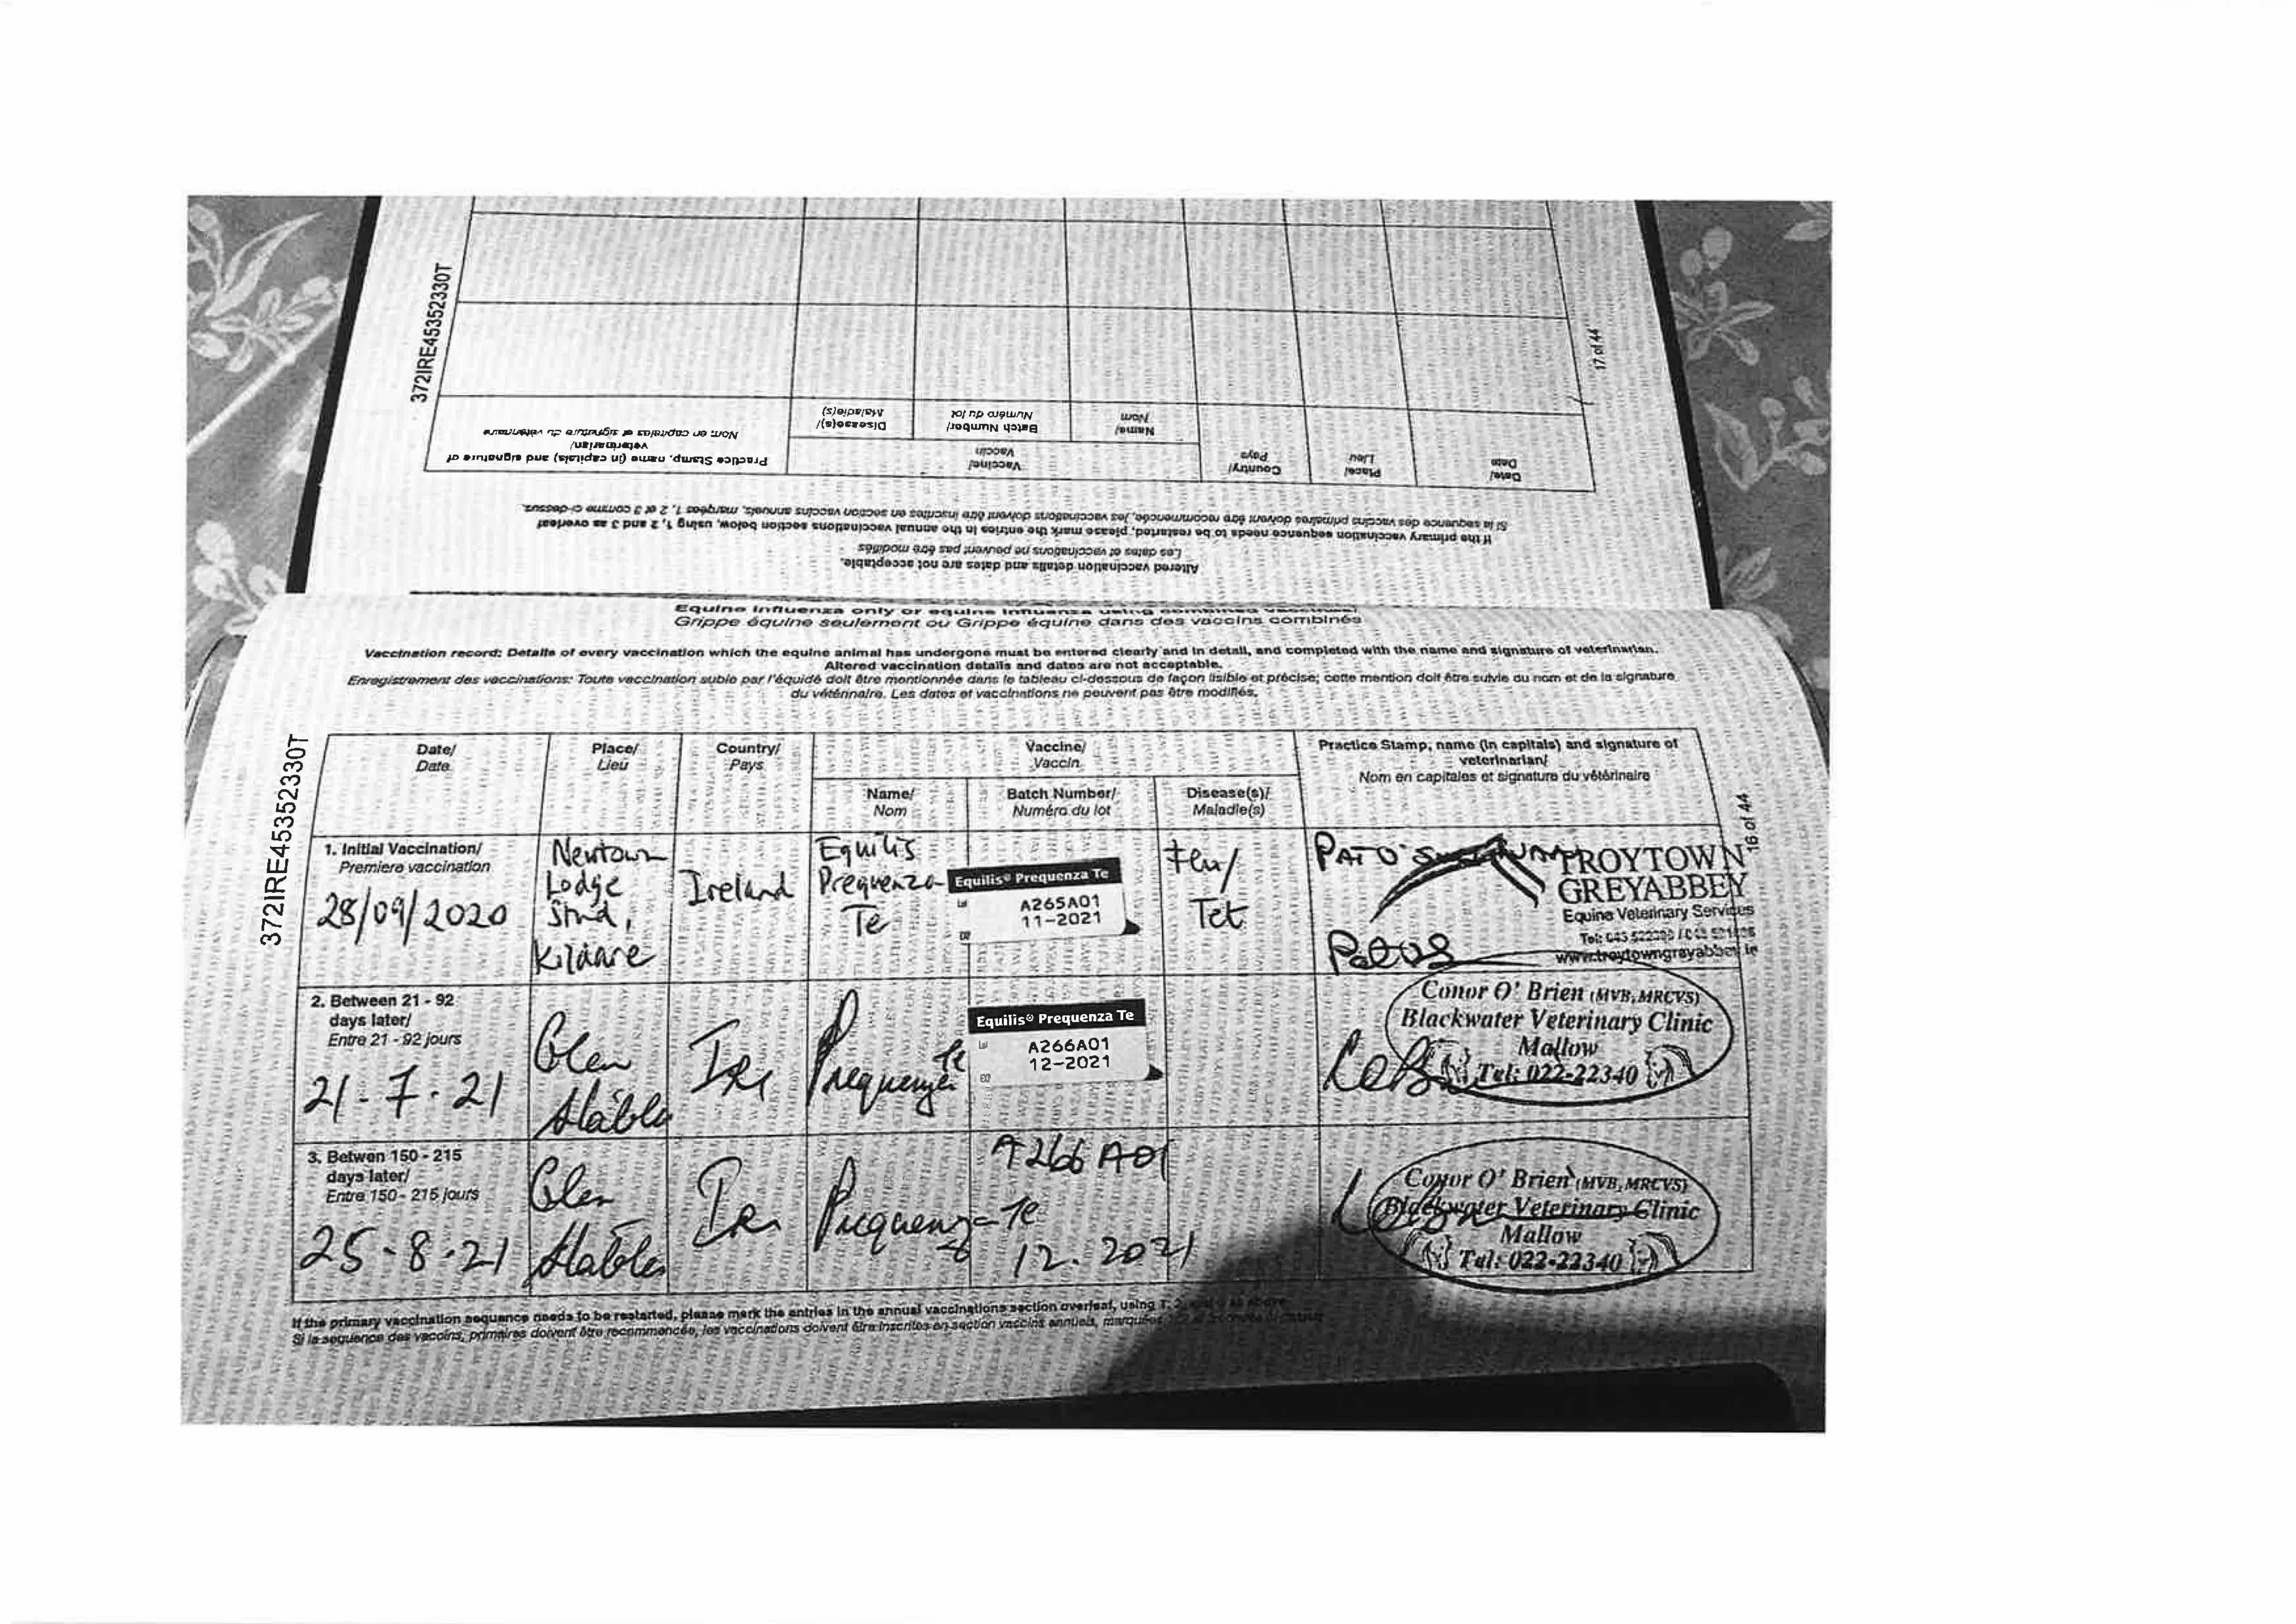 372IRE45352330T
17 of 44
Date/
Date
Place/
Lieu
Country/
Pays
Vaccine/
Vaccin
Name/
Nom
Batch Number/
Numéro du lot
Disease(s)/
Maladie(s)
Practice Stamp, name (in capitals) and signature of
veterinarian/
Nom en capitales et signature du vétérinaire
If the primary vaccination sequence needs to be restarted, please mark the entries in the annual vaccinations section below, using 1, 2 and 3 as overleaf
Si la sequence des vaccins primaires doivent être recommencée, les vaccinations doivent être inscrites en section vaccins annuels, marquées 1, 2 et 3 comme ci-dessus.
Altered vaccination details and dates are not acceptable.
Les dates et vaccinations ne peuvent pas être modifiés
Equine Influenza only or equine influenza using combined vaccines/
Grippe équine seulement ou Grippe équine dans des vaccins combinés
Vaccination record: Details of every vaccination which the equine animal has undergone must be entered clearly and in detail, and completed with the name and signature of veterinarian.
Altered vaccination details and dates are not acceptable.
Enregistrement des vaccinations: Toute vaccination subie par l'équidé doit être mentionnée dans le tableau ci-dessous de façon lisible et précise; cette mention doit être suivie du nom et de la signature
du vétérinaire. Les dates et vaccinations ne peuvent pas être modifiés.
372IRE45352330T
16 of 44
Date/
Date
Place/
Lieu
Country/
Pays
Vaccine/
Vaccin
Name/
Nom
Batch Number/
Numéro du lot
Disease(s)/
Maladie(s)
Practice Stamp, name (in capitals) and signature of
veterinarian/
Nom en capitales et signature du vétérinaire
1. Initial Vaccination/
Premiere vaccination
28/09/2020
Newtown
Lodge
Stud,
Kildare
Ireland
Equilis
Prequenza
Te
Equilis® Prequenza Te
Lot
A265A01
11-2021
Flu/
Tet
TROYTOWN
GREYABBEY
Equine Veterinary Services
www.troytowngreyabbey.ie
2. Between 21 - 92
days later/
Entre 21 - 92 jours
21-7-21
Glen
Stables
Ire
Prequenza
Te
Equilis® Prequenza Te
Lot
A266A01
12-2021
Conor O' Brien (MVB, MRCVS)
Blackwater Veterinary Clinic
Mallow
Tel: 022-22340
3. Betwen 150 - 215
days later/
Entre 150 - 215 jours
25-8-21
Glen
Stables
Ire
Prequenza Te
A266A01
12.2021
Conor O' Brien (MVB, MRCVS)
Blackwater Veterinary Clinic
Mallow
Tel: 022-22340
If the primary vaccination sequence needs to be restarted, please mark the entries in the annual vaccinations section overleaf, using 1, 2
Si la sequence des vaccins, primaires doivent être recommencée, les vaccinations doivent être inscrites en section vaccins annuels, marquées